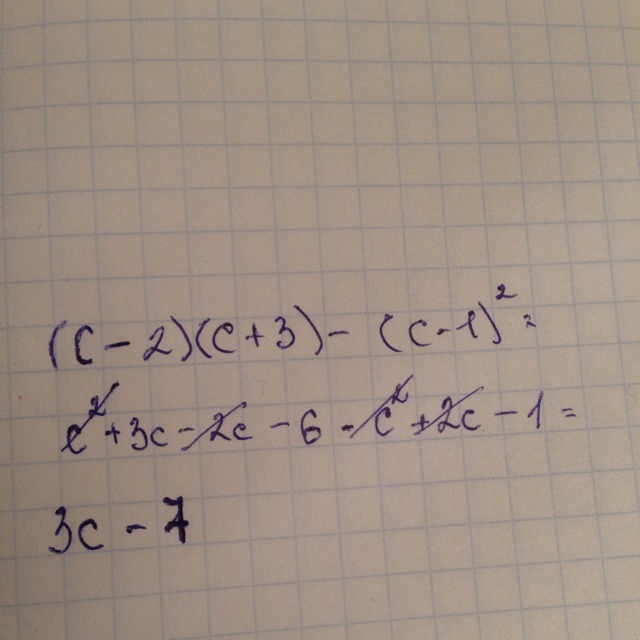 (c - 2)(c + 3) - (c - 1)² =
c² + 3c - 2c - 6 - c² + 2c - 1 =
3c - 7